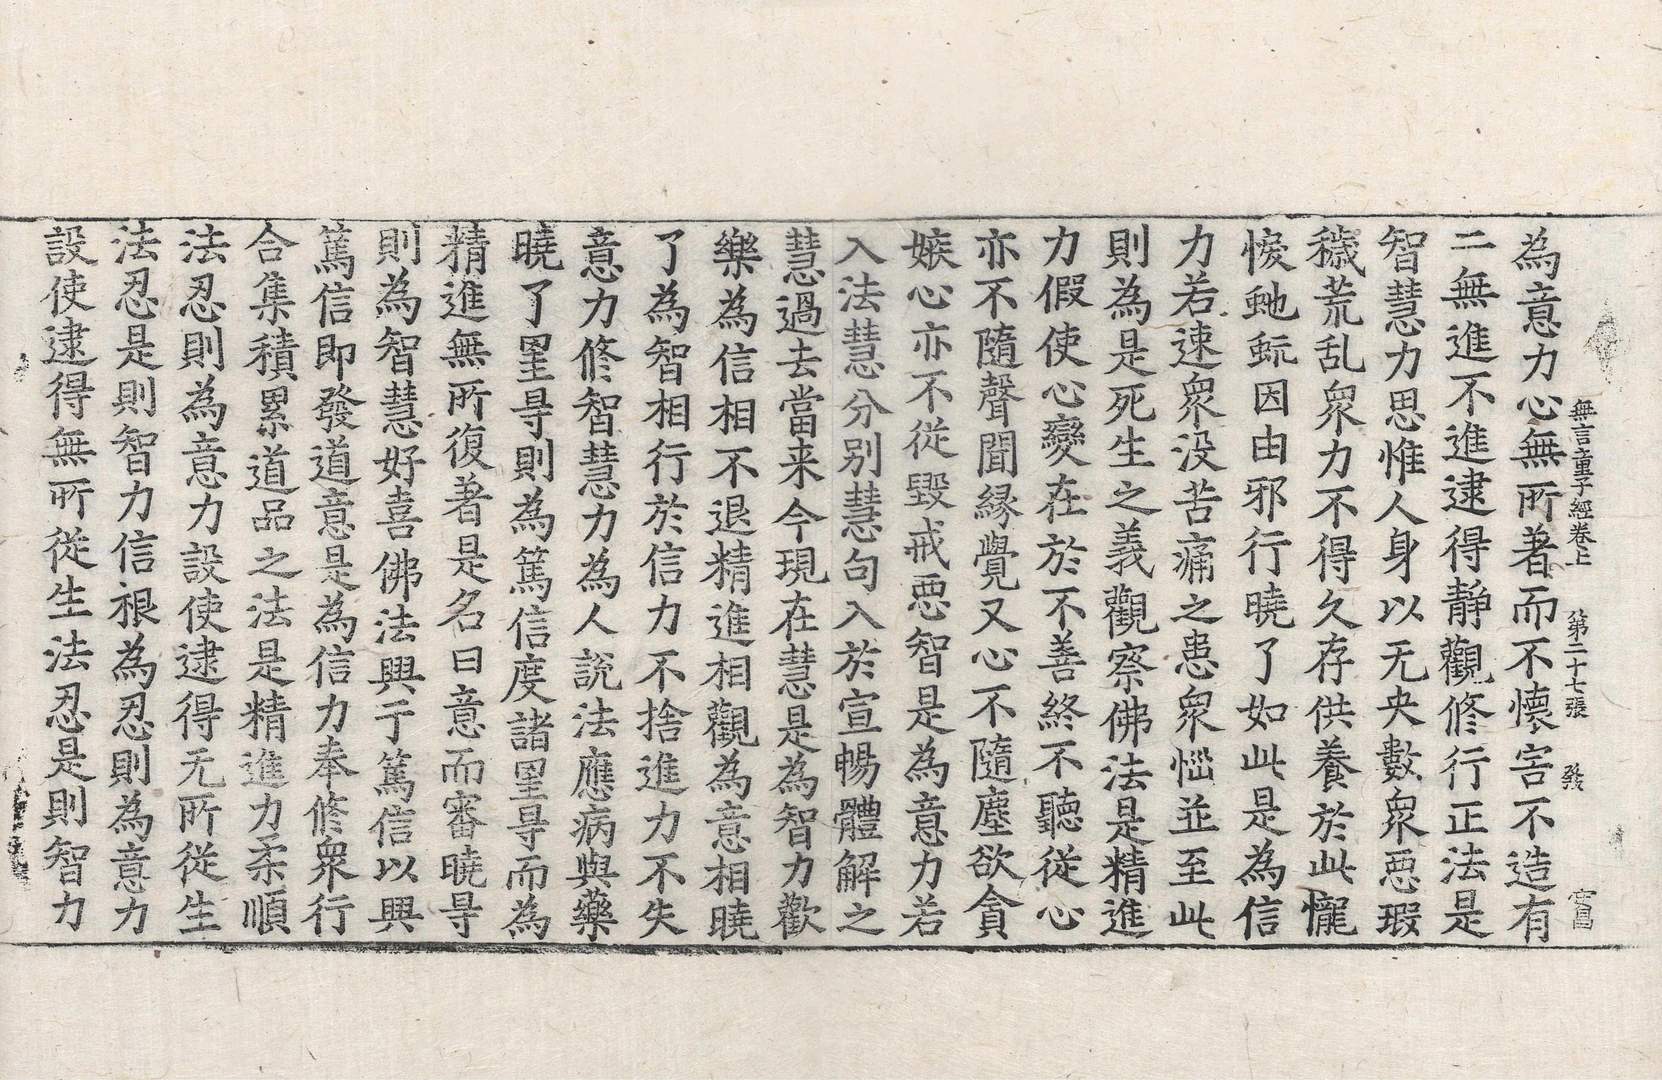 無言童子經卷上 第二十七張 發
為意力心無所著而不懷害不造有
二無進不進逮得靜觀修行正法是
智慧力思惟人身以无央數衆惡瑕
穢荒乱衆力不得久存供養於此㦕
悷虵蚖因由邪行曉了如此是為信
力若速衆没苦痛之患衆惱並至此
則為是死生之義觀察佛法是精進
力假使心變在於不善終不聽從心
亦不隨聲聞縁覺又心不隨塵欲貪
嫉心亦不從毀戒惡智是為意力若
入法慧分別慧句入於宣暢體解之
慧過去當来今現在慧是為智力歡
樂為信相不退精進相觀為意相曉
了為智相行於信力不捨進力不失
意力修智慧力為人說法應病與藥
曉了罣㝵則為篤信度諸罣㝵而為
精進無所復著是名曰意而審曉㝵
則為智慧好喜佛法興于篤信以興
篤信即發道意是為信力奉修衆行
合集積累道品之法是精進力柔順
法忍則為意力設使逮得无所從生
法忍是則智力信根為忍則為意力
設使逮得無所從生法忍是則智力